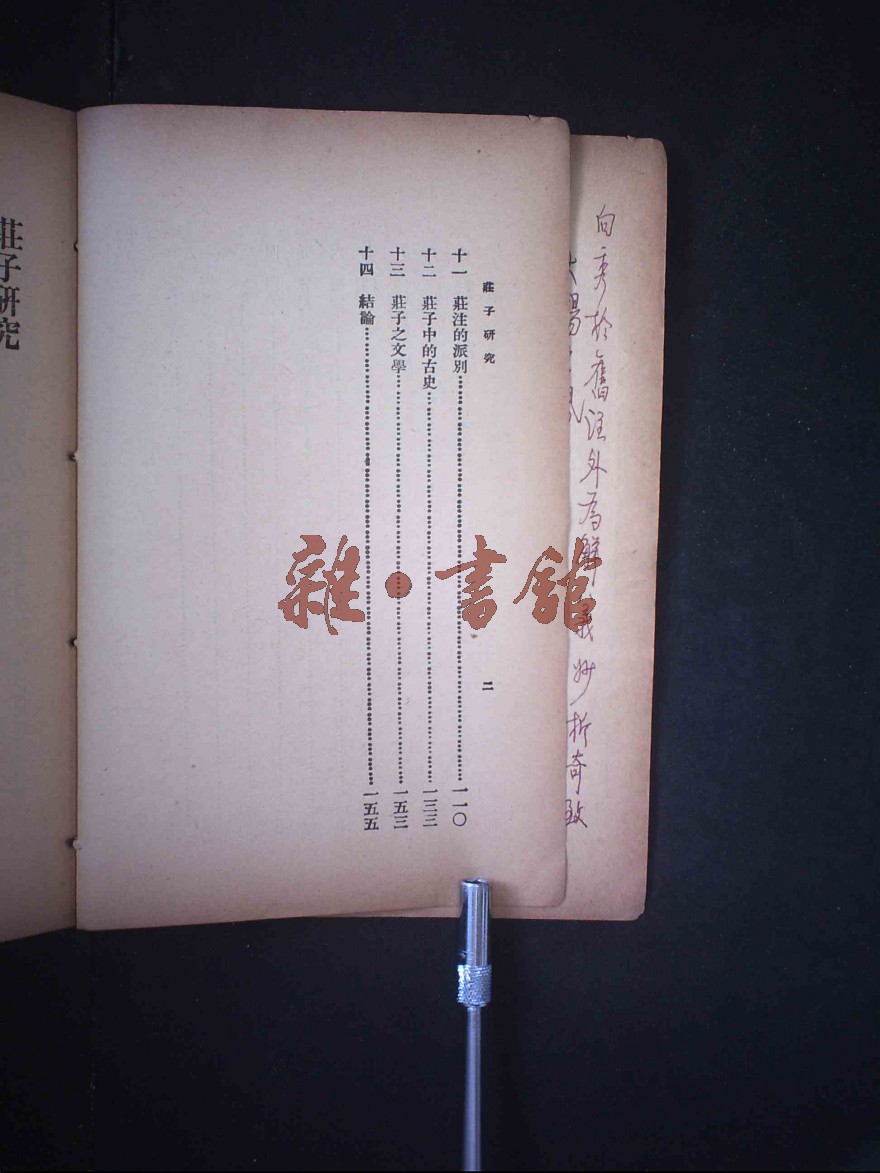 向秀於舊注外為解義妙析奇致
大暢玄風
莊子研究
二
十一 莊注的派別⋯⋯一一〇
十二 莊子中的古史⋯⋯一三三
十三 莊子之文學⋯⋯一五三
十四 結論⋯⋯一五五
莊子研究
雜·書館